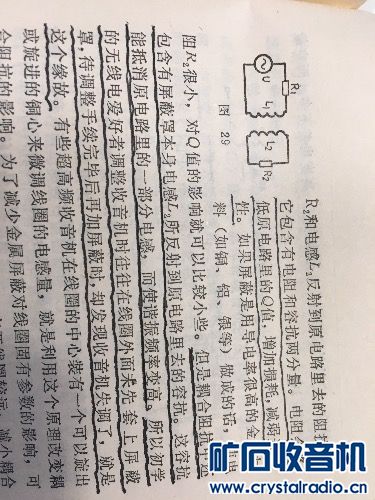 R₁
U
L₁
L₂
R₂
图 29
R₂和电感L₂反射到原电路里去的阻抗
它包含有电阻和容抗两分量。电阻
低原电路里的Q值，增加损耗，减弱
性。如果屏蔽是用导电率很高的金
料（如铜、铝、银等）做成的话，电
阻R₂很小，对Q值的影响就可以比较小些。但是耦合阻抗里
包含有屏蔽罩本身电感L₂所反射到原电路里去的容抗。这容抗
能抵消原电路里的一部分电感，而使谐振频率变高。所以初学
的无线电爱好者调整收音机时往往在线圈外面未先套上屏蔽
罩，待调整手续完毕后再加屏蔽时，却发现收音机失调了，就是
这个缘故。有些超高频收音机在线圈的中心装有一个可以旋出
或旋进的铜心来微调线圈的电感量，就是利用这个原理改变耦
合阻抗的影响。为了减少金属屏蔽对线圈固有参数的影响，可
线圈较远，减小耦合
矿石收音机
www.crystalradio.cn